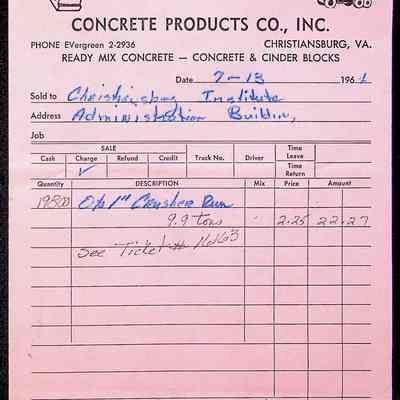 CONCRETE PRODUCTS CO., INC.
PHONE EVergreen 2-2936 CHRISTIANSBURG, VA.
READY MIX CONCRETE — CONCRETE & CINDER BLOCKS
Date 7-13 1961
Sold to Christiansburg Institute
Address Administration Buildin,
Job
SALE Truck No. Driver Time Leave
Cash Charge Refund Credit Time Return
✓
Quantity DESCRIPTION Mix Price Amount
19800 0 to 1" Crusher Run
9.9 tons 2.25 22.27
See Ticket#